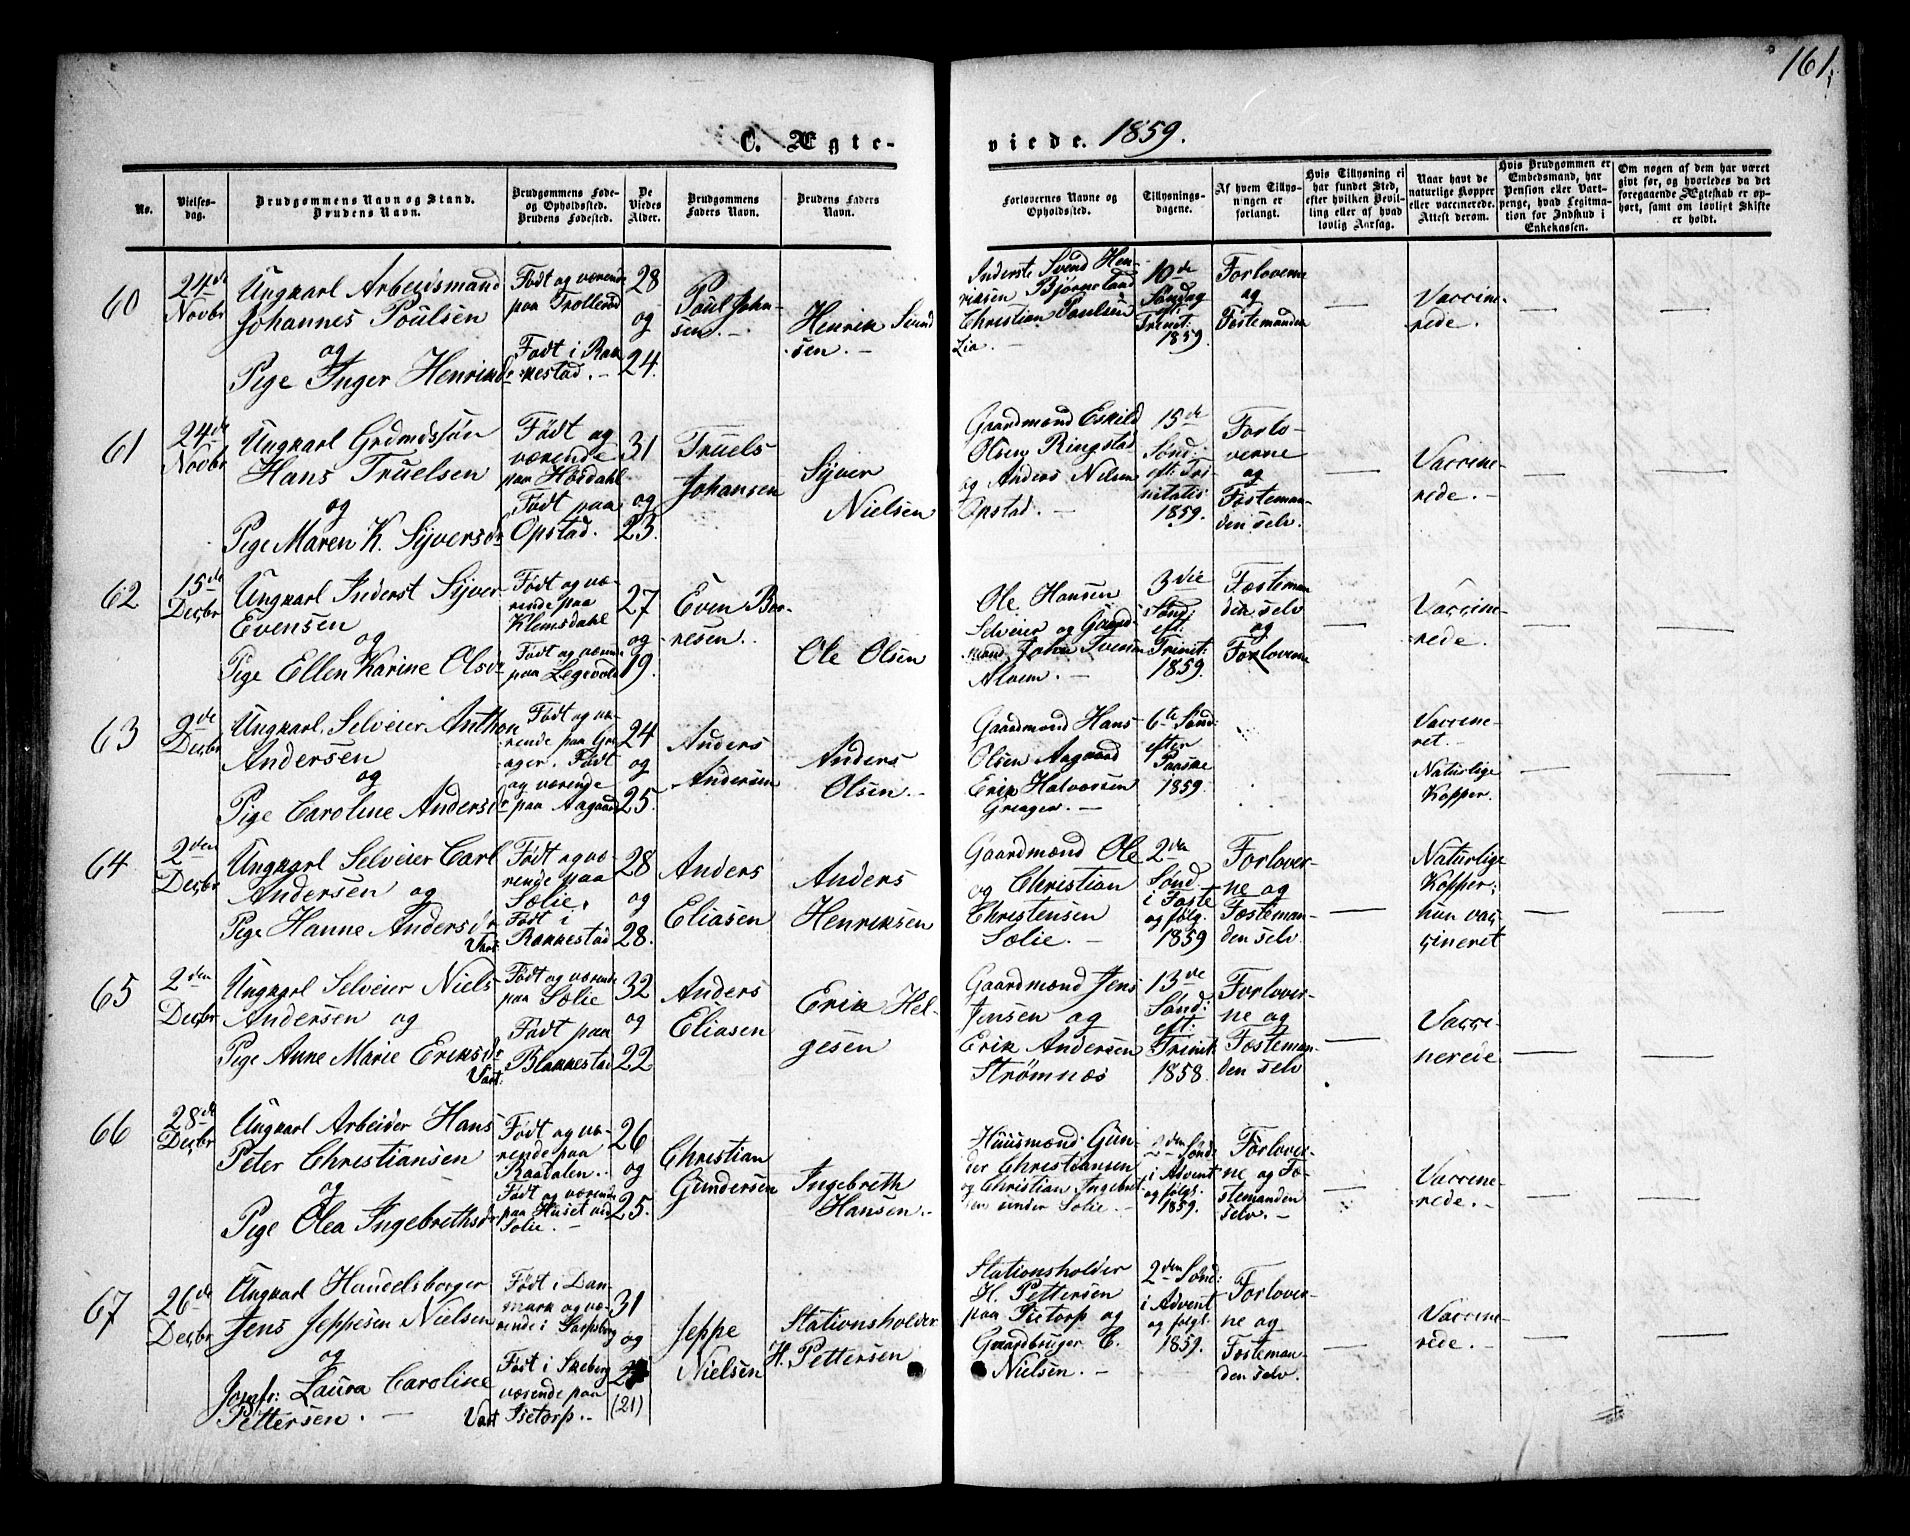 161.
C. Ægte-
viede. 1859.
No.
Vielses-
dag.
Brudgommens Navn og Stand.
Brudens Navn.
Brudgommens Føde-
og Opholdssted.
Brudens Fødested.
De
Viedes
Alder.
Brudgommens
Faders Navn.
Brudens Faders
Navn.
Forlovernes Navne og
Opholdssted.
Tillysnings-
dagene.
Af hvem Tillys-
ningen er
forlangt.
Hvis Tillysning ei
har fundet Sted,
efter hvilken Bevil-
ling eller af hvad
lovlig Aarsag.
Naar havt de
naturlige Kopper
eller vaccinerede.
Attest derom.
Hvis Brudgommen er
Embedsmand, har
Pension eller Vart-
penge, hvad Legitima-
tion for Indskud i
Enkekassen.
Om nogen af dem har været
givt før, og hvorledes da det
foregaaende Ægteskab er op-
hørt, samt om lovligt Skifte
er holdt.
60
24de
Novbr
Ungkarl Arbeidsmand
Johannes Poulsen
og
Pige Inger Henriksdr
Født og værende
paa Trollerud
Født i Rak-
kestad. -
28
og
24.
Poul Johan-
sen. -
Henrik Svend-
sen. -
Inderste Svend Hen-
riksen Bjørnerland
Christian Paulsen
Lia. -
10de
Søndag
eft.
Trinit:
1859.
Forloverne
og
Fæstemanden
Vaccine-
rede. -
61
24de
Novbr
Ungkarl Grdmdssøn
Hans Truelsen
og
Pige Maren K. Syversdr
Født og
værende
paa Høddahl
Født paa
Opstad.
31
og
23.
Truels
Johansen
Syver
Nielsen
Gaardmænd Eskild
Olsen Ringstad
og Anders Nilsen
Opstad. -
15de
Sønd:
eft: Tri-
nitatis
1859.
Forlo-
verne
og
Fæsteman-
den selv.
Vaccine-
rede. -
62
15de
Decbr
Ungkarl Inderst Syver
Evensen
og
Pige Ellen Karine Olsdr
Født og væ-
rende paa
Klemsdahl
Født og være-
paa Legevold
27
og
19.
Even Bor-
resen.
Ole Olsen
Ole Hansen
Selveier og Gaard-
mand John Svensen
Alvim. -
3die
Sønd:
eft.
Trinit:
1859.
Fæsteman
den selv
og
Forloverne
Vaccine-
rede. -
63
2de
Decbr
Ungkarl, Selveier Anthon
Andersen
og
Pige Caroline Andersdr
Født og væ-
rende paa Gre-
ager. Født
og værende
paa Aagaard
24
og
25.
Anders
Andersen
Anders
Olsen. -
Gaardmænd Hans
Olsen Aagaard
Erik Halvorsen
Greager. -
6te Sønd:
efter
Paaske
1859.
Vaccine-
ret. -
Naturlige
Kopper.
64
2den
Decbr
Ungkarl Selveier Carl
Andersen og
Pige Hanne Andersdr
Født og væ-
rende paa
Sælie.
Født i
Vær: Rakkestad
28
og
28.
Anders
Eliasen
Anders
Henriksen
Gaardmænd Ole
og Christian
Christensen
Sælie. -
2den
Sønd
i Faste
og følg.
1859
Forlover-
ne og
Fæsteman-
den selv
Naturlige
Kopper;
hun vac-
cineret
65
2den
Decbr
Ungkarl Selveier Niels
Andersen og
Pige Anne Marie Eriksdr
Født og værende
paa Sælie
Født paa
Blakkestad
32
og
22
Anders
Eliasen
Erik Hel-
gesen
Gaardmænd Jens
Jensen og
Erik Andersen
Strømnæs
13de
Sønd:
eft:
Trinit:
1858.
Forlover-
ne og
Fæsteman-
den selv
Vacci-
nerede
66
28de
Decbr
Ungkarl Arbeider Hans
Peter Christiansen
og
Pige Olea Ingebrethsdr
Født og væ-
rende paa
Raadalen.
Født og værende
paa Huset ved
Sølie. -
26
og
25.
Christian
Gundersen
Ingebreth
Hansen. -
Huusmænd: Gun-
der Christiansen
og Christian Ingebret-
sen under Sølie. -
2den Sønd:
i Advent
og følgl.
1859.
Forlover-
ne og Fæ-
stemanden
selv. -
Vaccine-
rede. -
67
26de
Decbr
Ungkarl Handelsborger
Jens Jeppesen Nielsen
og
Jomfr: Laura Caroline
Pettersen. -
Født i Dan-
mark og væ-
rende i Sarpsborg
Født i Skeberg
værende paa
Vær: Tietorp. -
31
og
(21)
Jeppe
Nielsen
Stationsholder
H. Pettersen
Stationsholder
H. Pettersen
paa Tietorp og
Gaardbruger C.
Nielsen. -
2den Sønd:
i Advent
og følgl.
1859.
Forlover-
ne og
Fæsteman-
den selv.
Vaccine-
rede. -